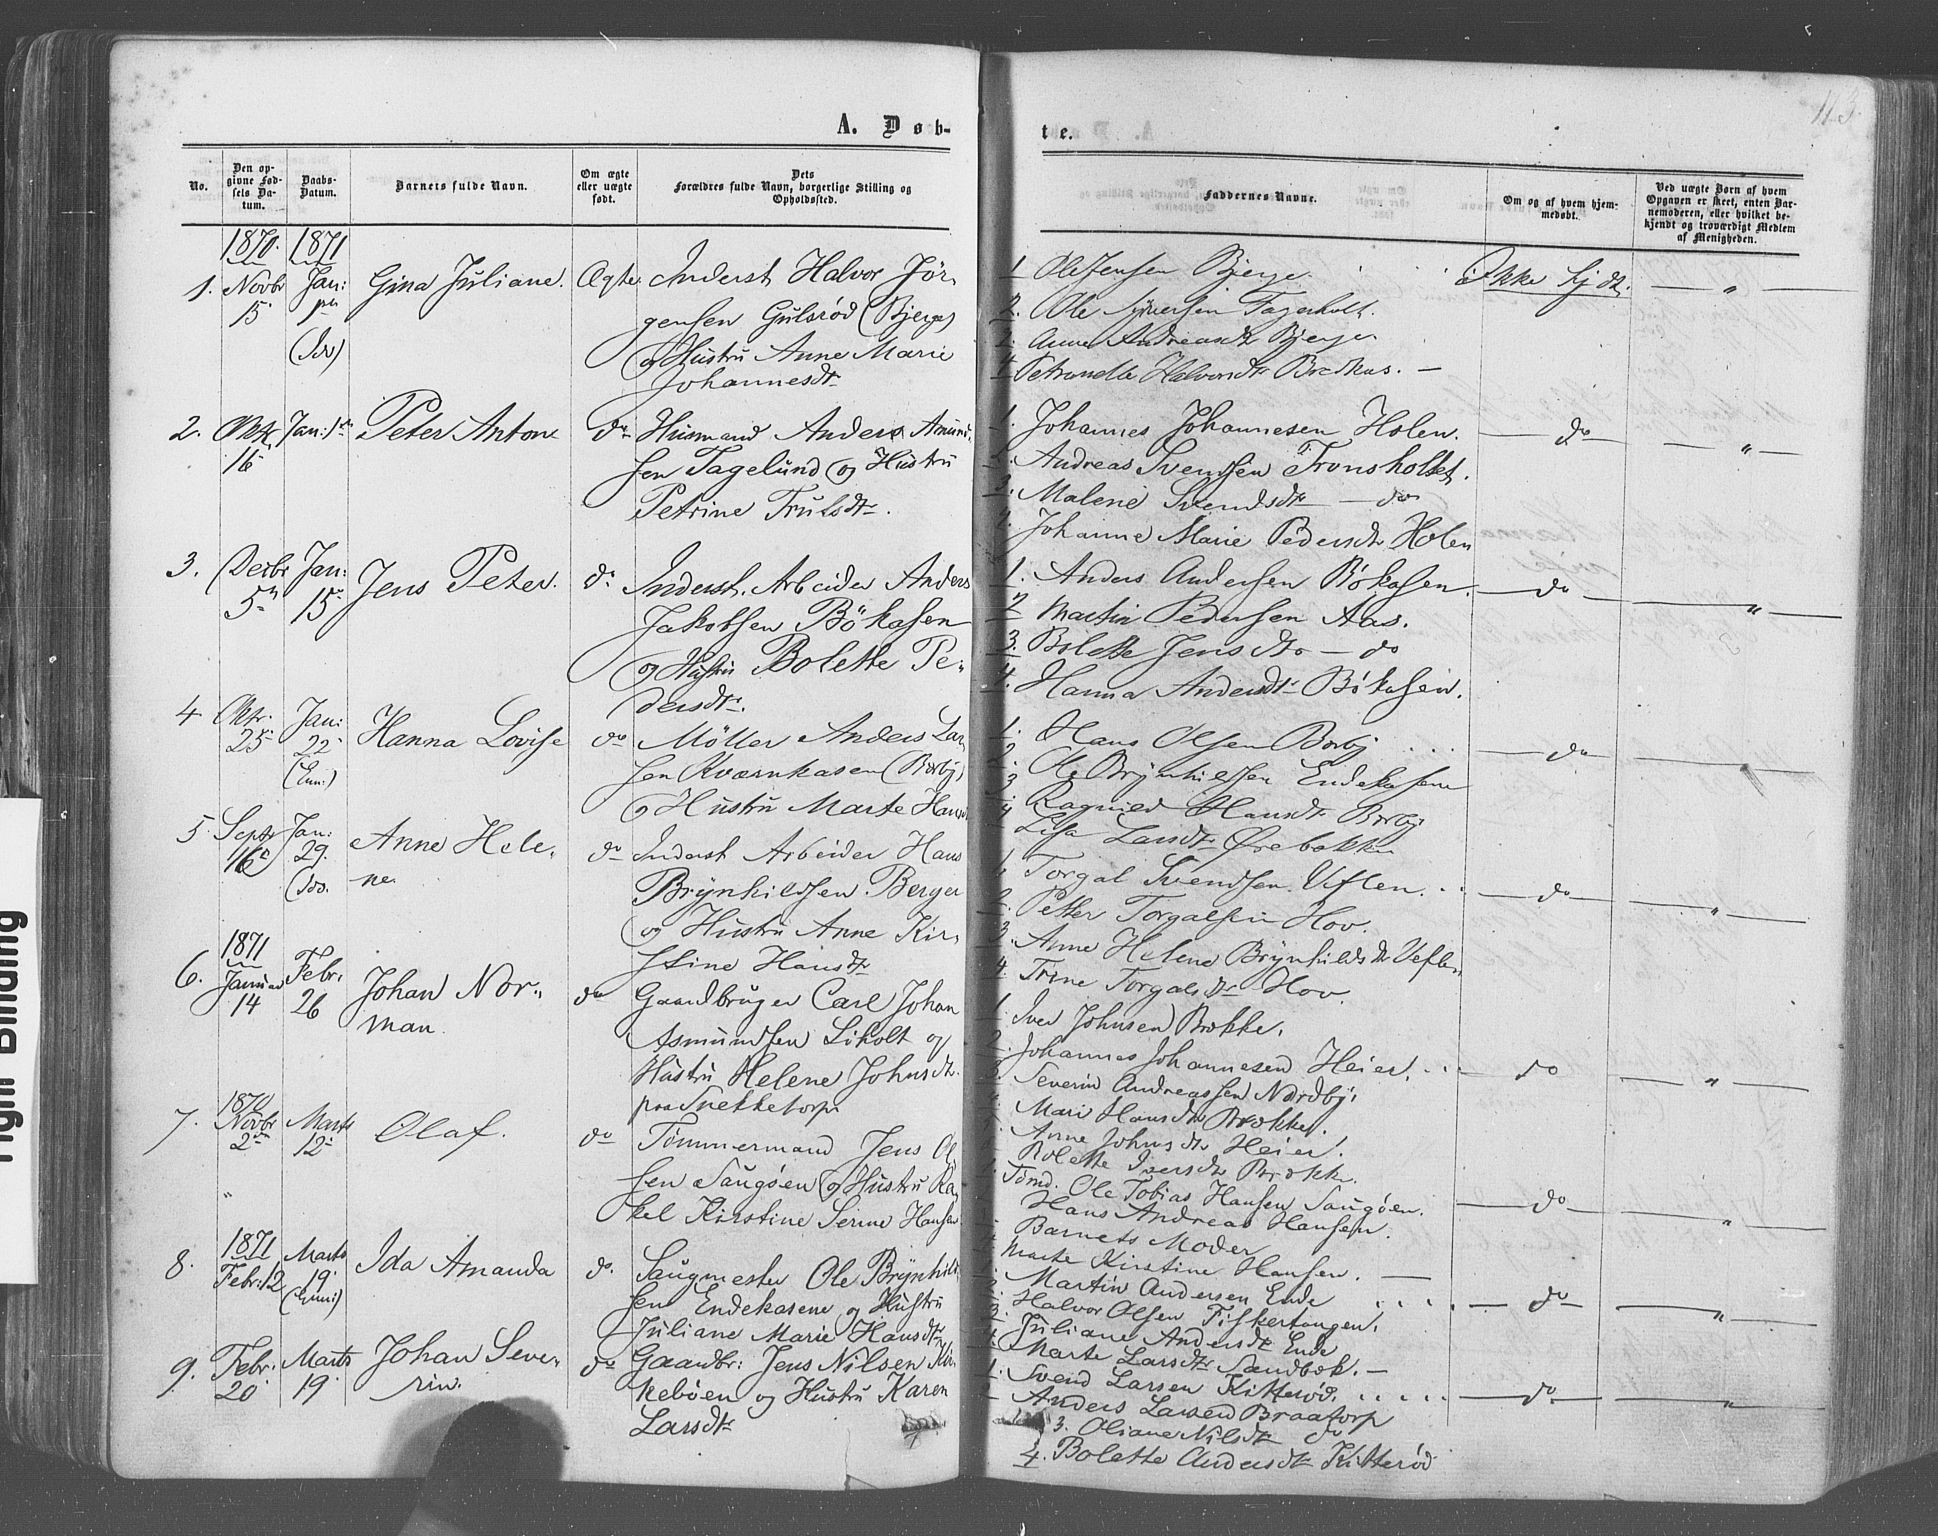 113
A. Døb-
te.
No.
Den op-
givne Fød-
sels Da-
tum.
Daabs-
Datum.
Barnets fulde Navn.
Om ægte
eller uægte
født.
Dets
Forældres fulde Navn, borgerlige Stilling og
Opholdssted.
Faddernes Navne.
Om og af hvem hjem-
medøbt.
Ved uægte Børn af hvem
Opgaven er skeet, enten Bar-
nemoderen, eller hvilket be-
kjendt og troværdigt Medlem
af Menigheden.
1870. 1871
1. Novbr Jan: Gina Juliane. Ægte Inderst Halvor Jør-
15
gensen Gulsrød (Bjerge)
og Hustru Anne Marie
Johannesdtr
1 Ole Jensen Bjerge Ikke Hjdt. — " —
2. Ole Syversen Fagerholt.
3. Anne Andreasdtr Bjerge
4 Petronelle Halvorsdtr Bredhus. —
2. Oktr Jan: 1ste Peter Anton do Husmand Anders Amund-
16
sen Tagelund og Hustru
Petrine Trulsdtr.
1. Johannes Johannesen Holen. — do — — " —
2. Andreas Svendsen Tronsholtet.
3. Malene Svendsdtr — do
4. Johanne Marie Pedersdtr Holen
3. Decbr Jan: Jens Peter. do Inderst. Arbeider Anders
5te 15de
Jakobsen Bökasen
og Hustru Bolette Pe-
dersdtr.
1. Anders Andersen Bökasen. — do — — " —
2 Martin Pedersen Aas.
3. Bolette Jensdtr — do
4. Hanna Andersdtr Bökasen.
4 Oktr. Jan: Hanna Lovise do Möller Anders Lar-
25 22
(Enn:)
sen Kværnkasen (Borby)
og Hustru Marte Hansd
1. Hans Olsen Borby . . . — do —
2. Ole Brynhildsen Endekasene
3 Ragnild Hansdtr Borby
4 Lisa Larsdtr Ørebekken
5. Septr Jan: Anne Hele- do Inderst Arbeider Hans
16 29. ne.
Brynhildsen Berger
og Hustru Anne Kir-
stine Hansdtr
1. Torgal Svendsen Veflen. — do — — " —
2. Petter Torgalsen Hov.
3. Anne Helene Brynhildsdtr Veflen
4. Trine Torgalsdtr Hov.
1871
6. Januar Febr. Johan Nor- do Gaardbruger Carl Johan
14 26 man.
Asmundsen Liholt og
Hustru Helene Johnsdtr.
paa Snekketorp
1. Iver Johnsen Brække.
2. Johannes Johannesen Heier. — do — — " —
3. Severin Andreassen Nordby.
Mari Hansdtr Brække.
Anne Johnsdtr Heier.
Bolette Iversdtr Brække
1870
7. Novbr Marts Olaf. do Tömmermand Jens Ol-
2den 12te
sen Saugöen og Hustru Ra-
kel Kirstine Serine Hansen
Tömd. Ole Tobias Hansen Saugöen. — do — — " —
Hans Andreas Hansen.
Barnets Moder
Marte Kirstine Hansen. —
1871
8. Febr: 12 Marts Ida Amanda do. Saugmester Ole Brynhild-
19
(Enni)
sen Endekasene og Hustru
Juliane Marie Hansdtr
1. Martin Andersen Ende . . . . — do — — " —
2. Halvor Olsen Fiskertangen.
3. Juliane Andersdtr Ende
4. Marte Larsdtr Sandbæk. —
9. Febr: Marts Johan Seve- do Gaardbr: Jens Nilsen Kir-
20 19 rin.
kebøen og Hustru Karen
Larsdtr
1. Svend Larsen Kitterød. . . . . . — do. — — " —
Anders Larsen Braatorp
3. Oliane Nilsdtr do
4. Bolette Andersdtr Kitterød